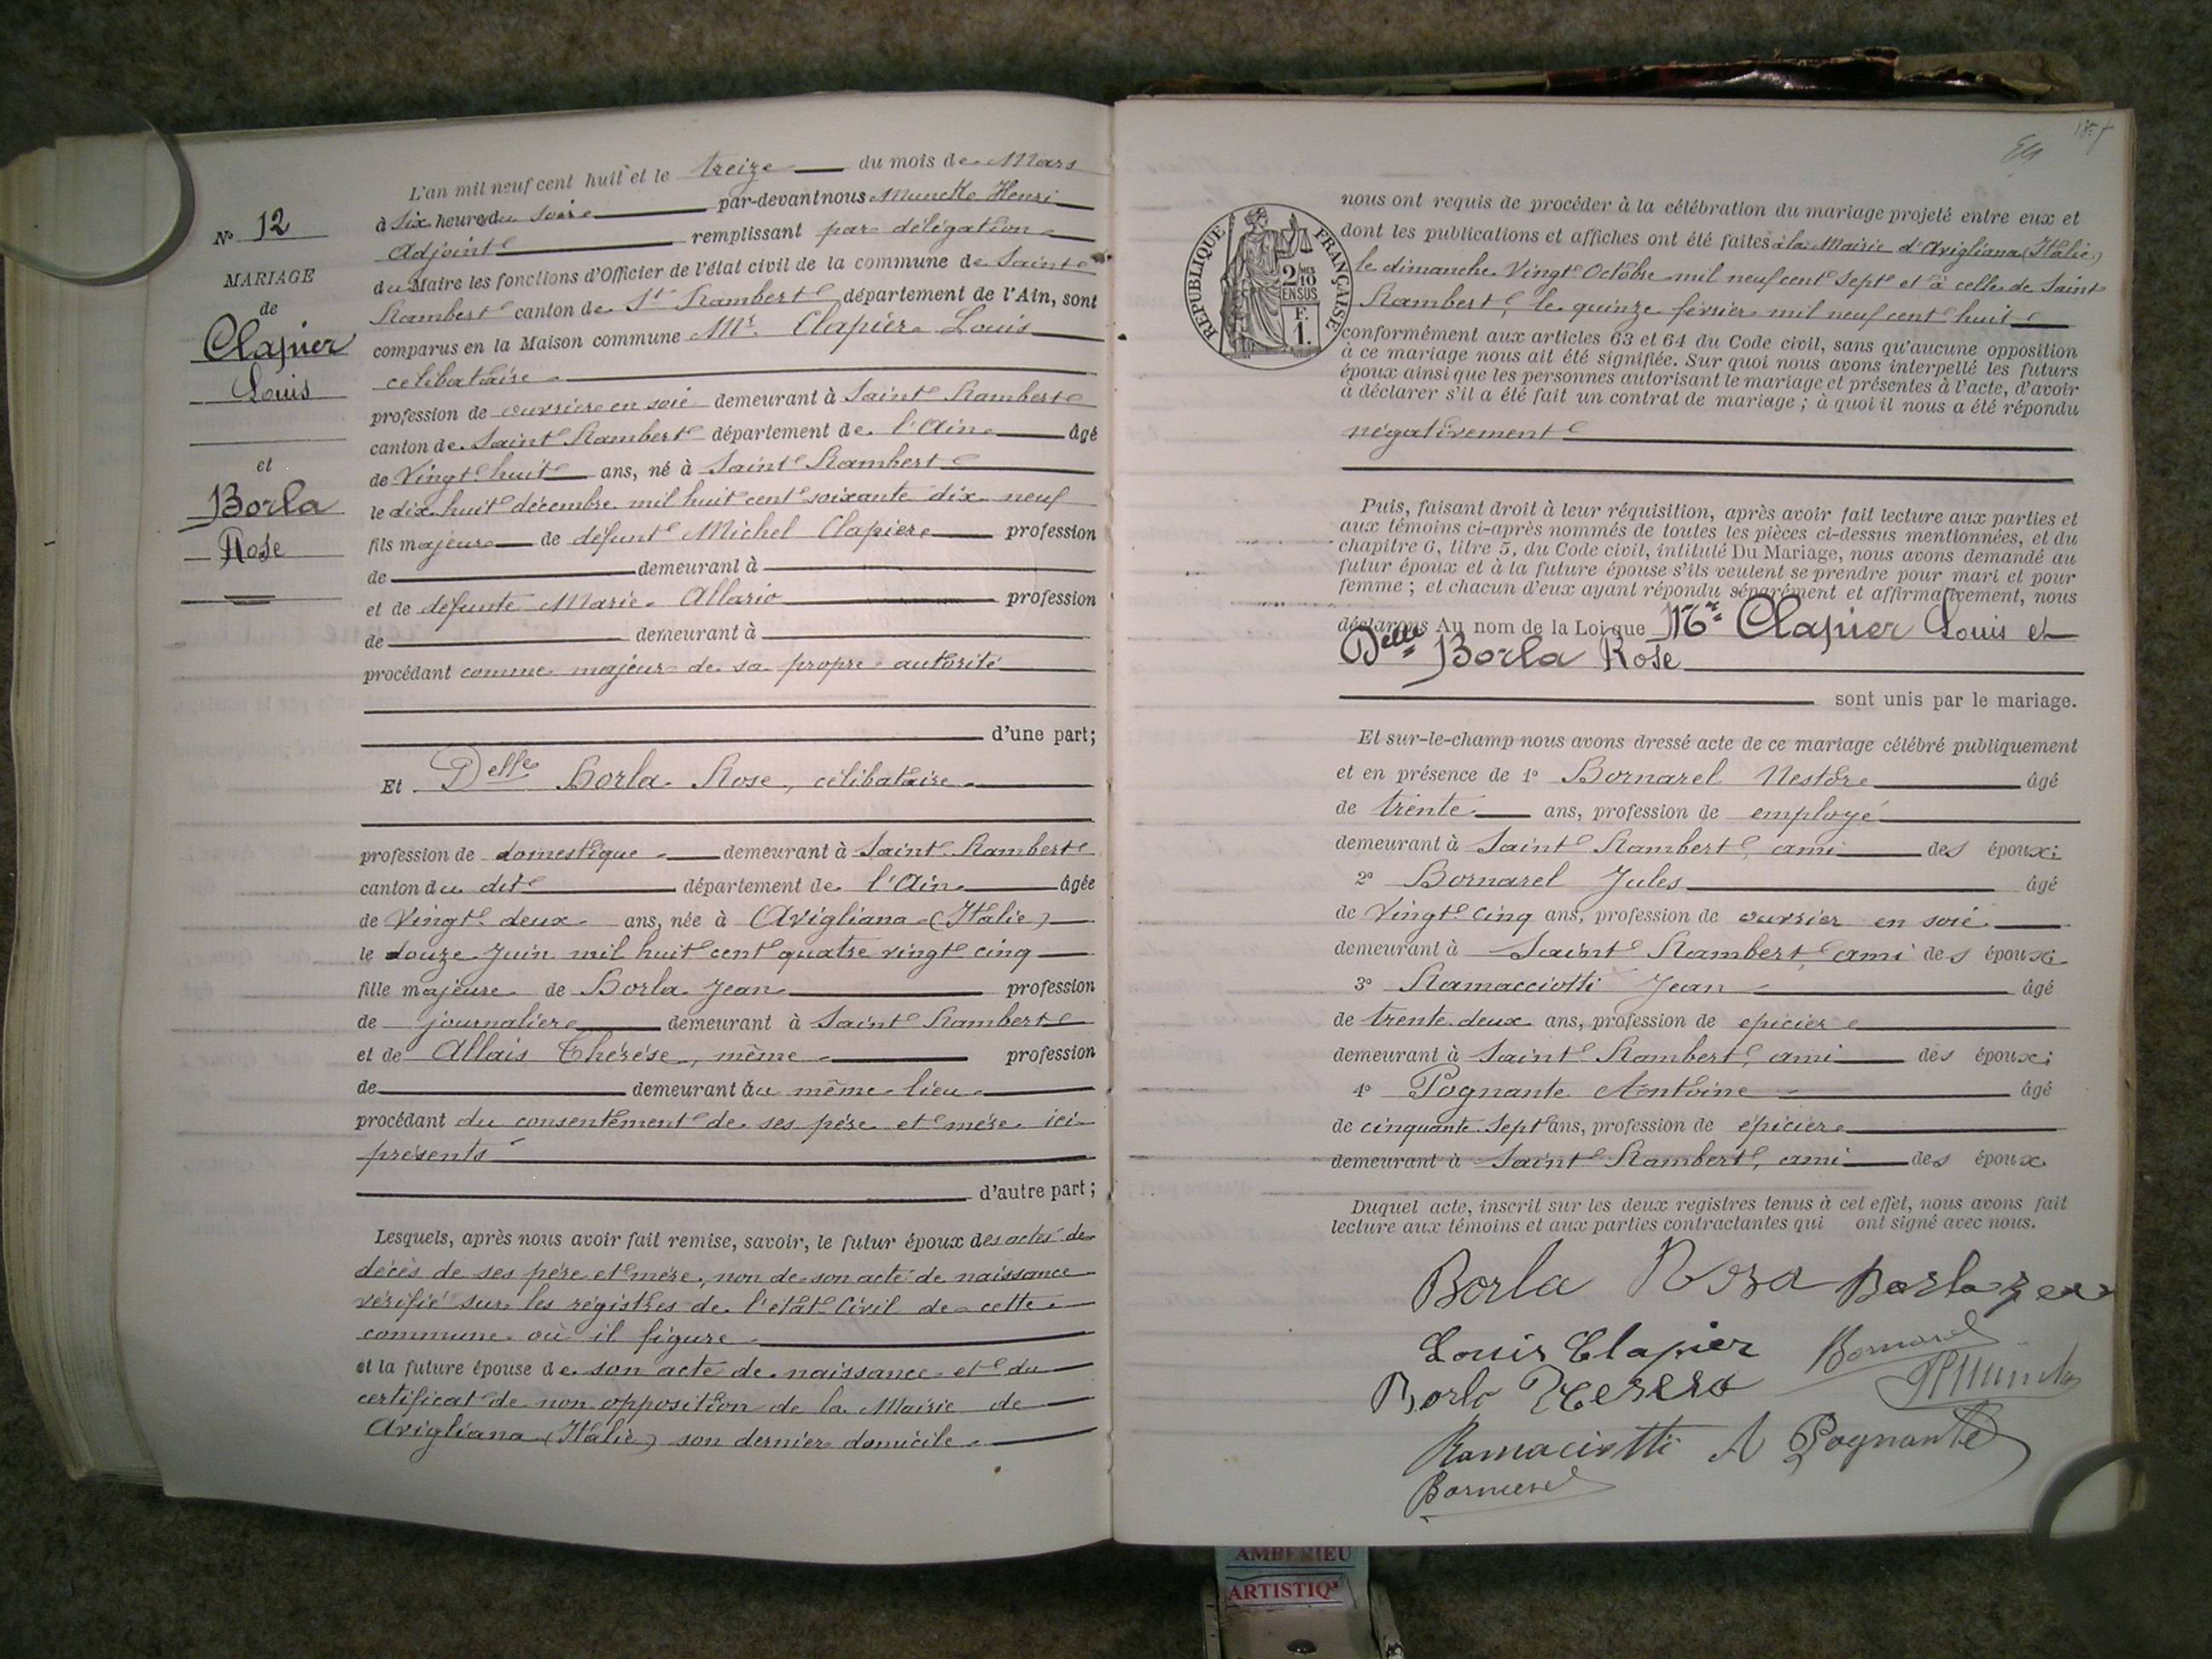 N° 12
MARIAGE
de
Clapier
Louis
et
Borla
Rose
L'an mil neuf cent huit et le treize du mois de Mars
à six heures du soir par-devant nous Muncke Henri
Adjoint remplissant par délégation
du Maire les fonctions d'Officier de l'état civil de la commune de Saint
Rambert canton de St Rambert département de l'Ain, sont
comparus en la Maison commune Mr. Clapier Louis
célibataire
profession de ouvrier en soie demeurant à Saint Rambert
canton de Saint Rambert département de l'Ain âgé
de Vingt huit ans, né à Saint Rambert
le dix huit décembre mil huit cent soixante dix neuf
fils majeur de défunt Michel Clapier profession
de demeurant à
et de défunte Marie Allario profession
de demeurant à
procédant comme majeur de sa propre autorité
d'une part;
Et Delle Borla Rose, célibataire
profession de domestique demeurant à Saint Rambert
canton du dit département de l'Ain âgée
de Vingt deux ans, née à Avigliana (Italie)
le douze Juin mil huit cent quatre vingt cinq
fille majeure de Borla Jean profession
de journalier demeurant à Saint Rambert
et de Allais Thérèse, même profession
de demeurant au même lieu
procédant du consentement de ses père et mère ici
présents
d'autre part;
Lesquels, après nous avoir fait remise, savoir, le futur époux des actes de
décès de ses père et mère, non de son acte de naissance
vérifié sur les registres de l'état Civil de cette
commune où il figure
et la future épouse de son acte de naissance et du
certificat de non opposition de la Mairie de
Avigliana (Italie) son dernier domicile
RÉPUBLIQUE FRANÇAISE
2 10
MES
EN SUS
F.
1.
nous ont requis de procéder à la célébration du mariage projeté entre eux et
dont les publications et affiches ont été faites à la Mairie d'Avigliana (Italie)
le dimanche Vingt Octobre mil neuf cent sept et à celle de Saint
Rambert, le quinze février mil neuf cent huit
conformément aux articles 63 et 64 du Code civil, sans qu'aucune opposition
à ce mariage nous ait été signifiée. Sur quoi nous avons interpellé les futurs
époux ainsi que les personnes autorisant le mariage et présentes à l'acte, d'avoir
à déclarer s'il a été fait un contrat de mariage; à quoi il nous a été répondu
négativement
Puis, faisant droit à leur réquisition, après avoir fait lecture aux parties et
aux témoins ci-après nommés de toutes les pièces ci-dessus mentionnées, et du
chapitre 6, titre 5, du Code civil, intitulé Du Mariage, nous avons demandé au
futur époux et à la future épouse s'ils veulent se prendre pour mari et pour
femme; et chacun d'eux ayant répondu séparément et affirmativement, nous
déclarons Au nom de la Loi que Mr Clapier Louis et
Delle Borla Rose
sont unis par le mariage.
Et sur-le-champ nous avons dressé acte de ce mariage célébré publiquement
et en présence de 1° Bornarel Nestor âgé
de trente ans, profession de employé
demeurant à Saint Rambert, ami des époux;
2° Bornarel Jules âgé
de Vingt cinq ans, profession de ouvrier en soie
demeurant à Saint Rambert ami des époux;
3° Ramacciotti Jean âgé
de trente deux ans, profession de epicier
demeurant à Saint Rambert, ami des époux;
4° Pognante Antoine âgé
de cinquante sept ans, profession de épicier
demeurant à Saint Rambert, ami des époux
Duquel acte, inscrit sur les deux registres tenus à cet effet, nous avons fait
lecture aux témoins et aux parties contractantes qui ont signé avec nous.
Borla Rosa Borla
Louis Clapier Bornarel
Borla
Ramaciotti A Pognante
Bornarel
AMBERIEU
ARTISTIQ